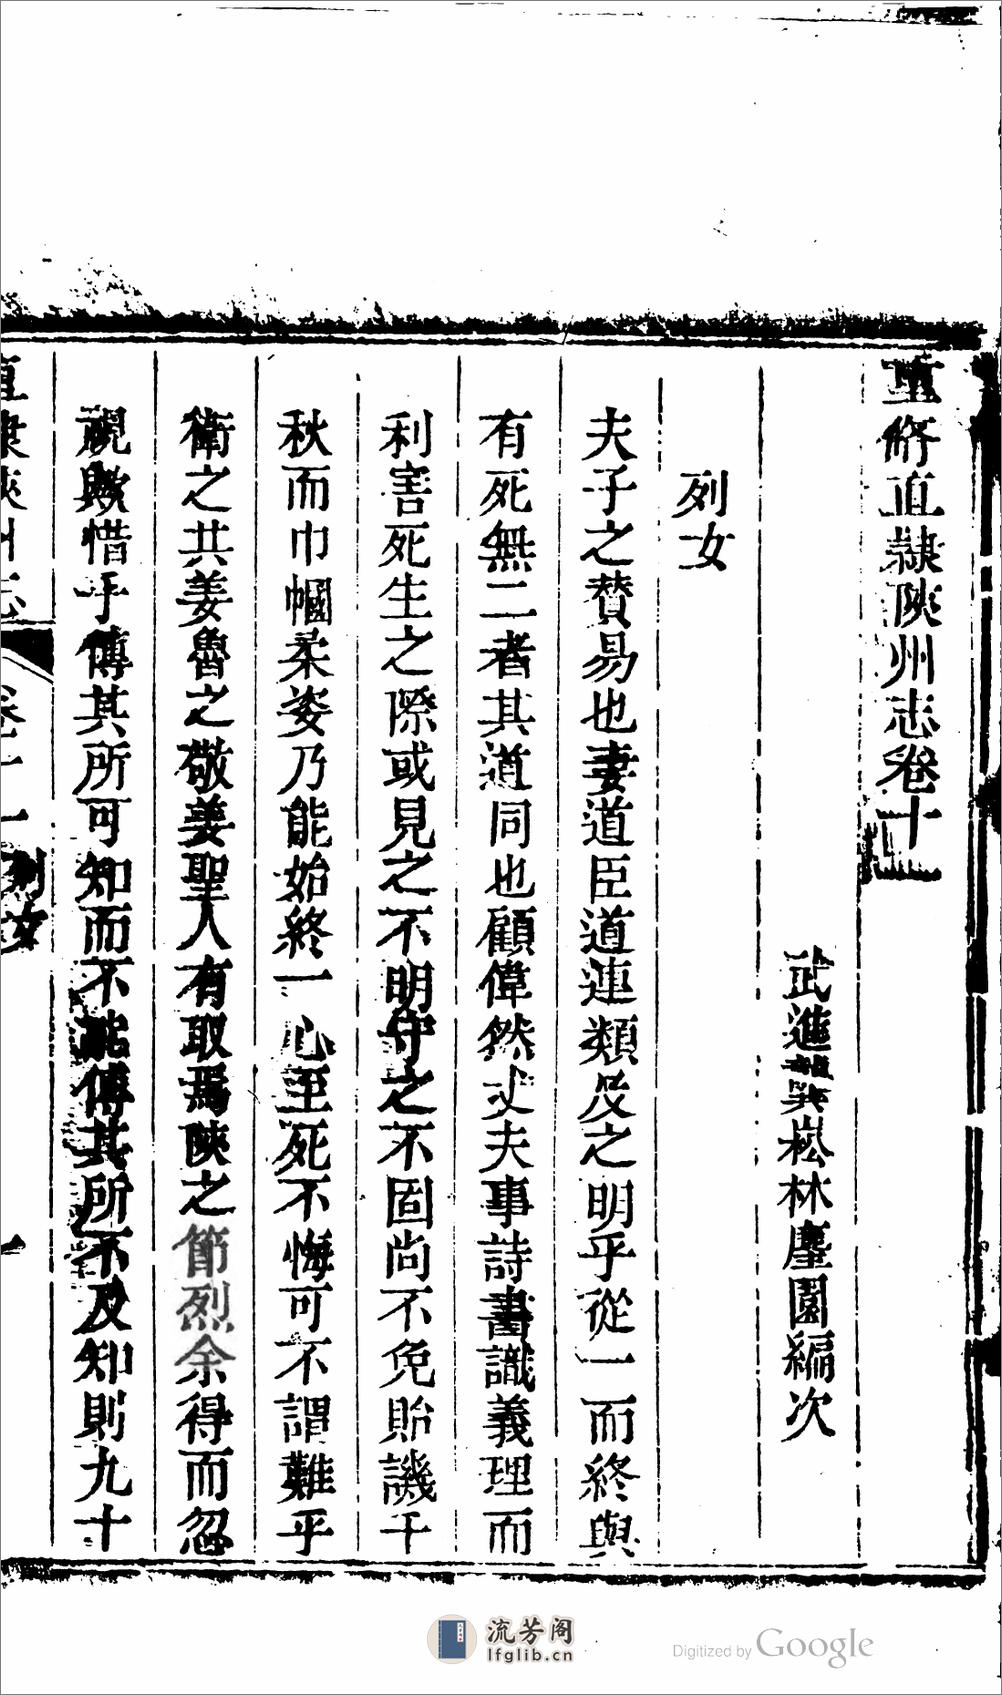 重修直隸陝州志卷十
武進龔崧林麈園編次
列女
夫子之贊易也妻道臣道連類及之明乎從一而終與
有死無二者其道同也顧偉然丈夫事詩書識義理而
利害死生之際或見之不明守之不固尚不免貽譏千
秋而巾幗柔姿乃能始終一心至死不悔可不謂難乎
衛之共姜魯之敬姜聖人有取焉陝之節烈余得而忽
視歟惜乎傳其所可知而不能傳其所不及知則九十
直隸陝州志 卷十一 列女 一
流芳阁
lfglib.cn
Digitized by Google